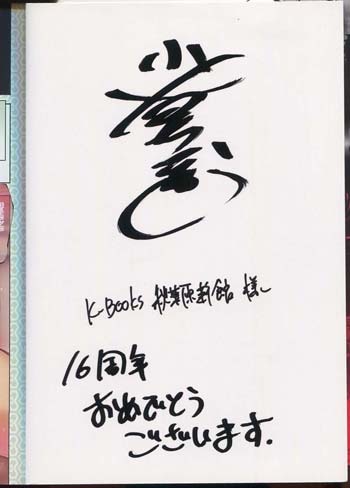 K-Books 秋葉原新館 様
16周年
おめでとう
ございます.